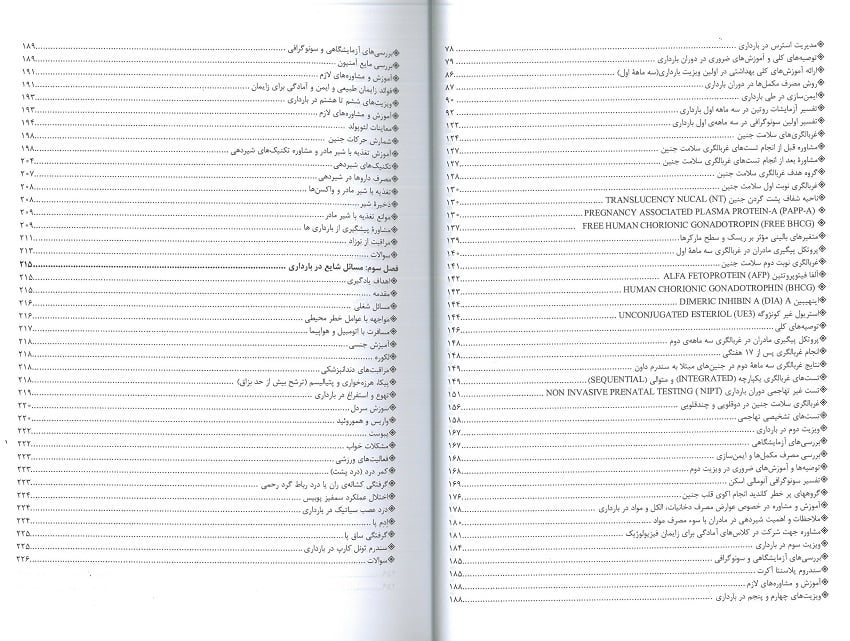 ❖مدیریت استرس در بارداری ........ ۷۸
❖توصیه‌های کلی و آموزش‌های ضروری در دوران بارداری ........ ۷۹
❖ارائه آموزش‌های کلی بهداشتی در اولین ویزیت بارداری(سه ماهۀ اول) ........ ۸۶
❖روش مصرف مکمل‌ها در دوران بارداری ........ ۸۷
❖ایمن‌سازی در طی بارداری ........ ۹۰
❖تفسیر آزمایشات روتین در سه ماهه اول بارداری ........ ۹۲
❖تفسیر اولین سونوگرافی در سه ماهه‌ی اول بارداری ........ ۱۲۳
❖غربالگری‌های سلامت جنین ........ ۱۲۴
❖مشاوره قبل از انجام تست‌های غربالگری سلامت جنین ........ ۱۲۷
❖مشاورۀ بعد از انجام تست‌های غربالگری سلامت جنین ........ ۱۲۷
❖گروه هدف غربالگری سلامت جنین ........ ۱۲۸
❖غربالگری نوبت اول سلامت جنین ........ ۱۳۰
❖ناحیه شفاف پشت گردن جنین TRANSLUCENCY NUCAL (NT) ........ ۱۳۰
❖PREGNANCY ASSOCIATED PLASMA PROTEIN-A (PAPP-A) ........ ۱۳۰
❖FREE HUMAN CHORIONIC GONADOTROPIN (FREE BHCG) ........ ۱۳۷
❖متغیرهای بالینی مؤثر بر ریسک و سطح مارکرها ........ ۱۳۹
❖پروتکل پیگیری مادران در غربالگری سه ماهۀ اول ........ ۱۴۰
❖غربالگری نوبت دوم سلامت جنین ........ ۱۴۱
❖آلفا فیتوپروتئین ALFA FETOPROTEIN (AFP) ........ ۱۴۲
❖HUMAN CHORIONIC GONADOTROPHIN (BHCG) ........ ۱۴۳
❖اینهیبین DIMERIC INHIBIN A (DIA) A ........ ۱۴۴
❖استریول غیر کونژوگه UNCONJUGATED ESTERIOL (UE3) ........ ۱۴۴
❖توصیه‌های کلی ........ ۱۴۶
❖پروتکل پیگیری مادران در غربالگری سه ماهه‌ی دوم ........ ۱۴۸
❖انجام غربالگری پس از ۱۷ هفتگی ........ ۱۴۸
❖نتایج غربالگری سه ماهۀ دوم در جنین‌های مبتلا به سندرم داون ........ ۱۴۹
❖تست‌های غربالگری یکپارچه (INTEGRATED) و متوالی (SEQUENTIAL) ........ ۱۴۹
❖تست غیر تهاجمی دوران بارداری NON INVASIVE PRENATAL TESTING ( NIPT) ........ ۱۵۱
❖غربالگری سلامت جنین در دوقلویی و چندقلویی ........ ۱۵۶
❖تست‌های تشخیصی تهاجمی ........ ۱۵۸
❖ویزیت دوم در بارداری ........ ۱۶۷
❖بررسی‌های آزمایشگاهی ........ ۱۶۷
❖بررسی مصرف مکمل‌ها و ایمن‌سازی ........ ۱۶۸
❖توصیه‌ها و آموزش‌های ضروری در ویزیت دوم ........ ۱۶۸
❖تفسیر سونوگرافی آنومالی اسکن ........ ۱۶۹
❖گروههای پر خطر کاندید انجام اکوی قلب جنین ........ ۱۷۶
❖آموزش و مشاوره در خصوص عوارض مصرف دخانیات، الکل و مواد در بارداری ........ ۱۷۷
❖ملاحظات و اهمیت شیردهی در مادران با سوء مصرف مواد ........ ۱۸۰
❖مشاوره جهت شرکت در کلاس‌های آمادگی برای زایمان فیزیولوژیک ........ ۱۸۱
❖ویزیت سوم در بارداری ........ ۱۸۴
❖بررسی‌های آزمایشگاهی و سونوگرافی ........ ۱۸۵
❖سندروم پلاسنتا آکرت ........ ۱۸۵
❖آموزش و مشاوره‌های لازم ........ ۱۸۸
❖ویزیت‌های چهارم و پنجم در بارداری ........ ۱۸۸
❖بررسی‌های آزمایشگاهی و سونوگرافی ........ ۱۸۹
❖بررسی مایع آمنیون ........ ۱۸۹
❖آموزش و مشاوره‌های لازم ........ ۱۹۱
❖فوائد زایمان طبیعی و ایمن و آمادگی برای زایمان ........ ۱۹۱
❖ویزیت‌های ششم تا هشتم در بارداری ........ ۱۹۳
❖آموزش و مشاوره‌های لازم ........ ۱۹۳
❖معاینات لئوپولد ........ ۱۹۴
❖شمارش حرکات جنین ........ ۱۹۸
❖آموزش تغذیه با شیر مادر و مشاوره تکنیک‌های شیردهی ........ ۱۹۸
❖تکنیک‌های شیردهی ........ ۲۰۴
❖مصرف داروها در شیردهی ........ ۲۰۷
❖تغذیه با شیر مادر و واکسن‌ها ........ ۲۰۸
❖ذخیرۀ شیر ........ ۲۰۸
❖موانع تغذیه با شیر مادر ........ ۲۰۹
❖مشاورۀ پیشگیری از بارداری ها ........ ۲۰۹
❖مراقبت از نوزاد ........ ۲۱۱
❖سوالات ........ ۲۱۳
فصل سوم: مسائل شایع در بارداری ........ ۲۱۵
❖اهداف یادگیری ........ ۲۱۵
❖مقدمه ........ ۲۱۵
❖مسائل شغلی ........ ۲۱۶
❖مواجهه با عوامل خطر محیطی ........ ۲۱۶
❖مسافرت با اتومبیل و هواپیما ........ ۲۱۷
❖آمیزش جنسی ........ ۲۱۸
❖لکوره ........ ۲۱۸
❖مراقبت‌های دندانپزشکی ........ ۲۱۸
❖پیکا، هرزه‌خواری و پتیالیسم (ترشح بیش از حد بزاق) ........ ۲۱۸
❖تهوع و استفراغ در بارداری ........ ۲۱۹
❖سوزش سردل ........ ۲۲۰
❖واریس و هموروئید ........ ۲۲۰
❖یبوست ........ ۲۲۲
❖مشکلات خواب ........ ۲۲۲
❖فعالیت‌های ورزشی ........ ۲۲۳
❖کمر درد (درد پشت) ........ ۲۲۳
❖گرفتگی کشاله‌ی ران یا درد رباط گرد رحمی ........ ۲۲۳
❖اختلال عملکرد سمفیز پوبیس ........ ۲۲۴
❖درد عصب سیاتیک در بارداری ........ ۲۲۴
❖ادم پا ........ ۲۲۴
❖گرفتگی ساق پا ........ ۲۲۵
❖سندرم تونل کارپ در بارداری ........ ۲۲۵
❖سوالات ........ ۲۲۶